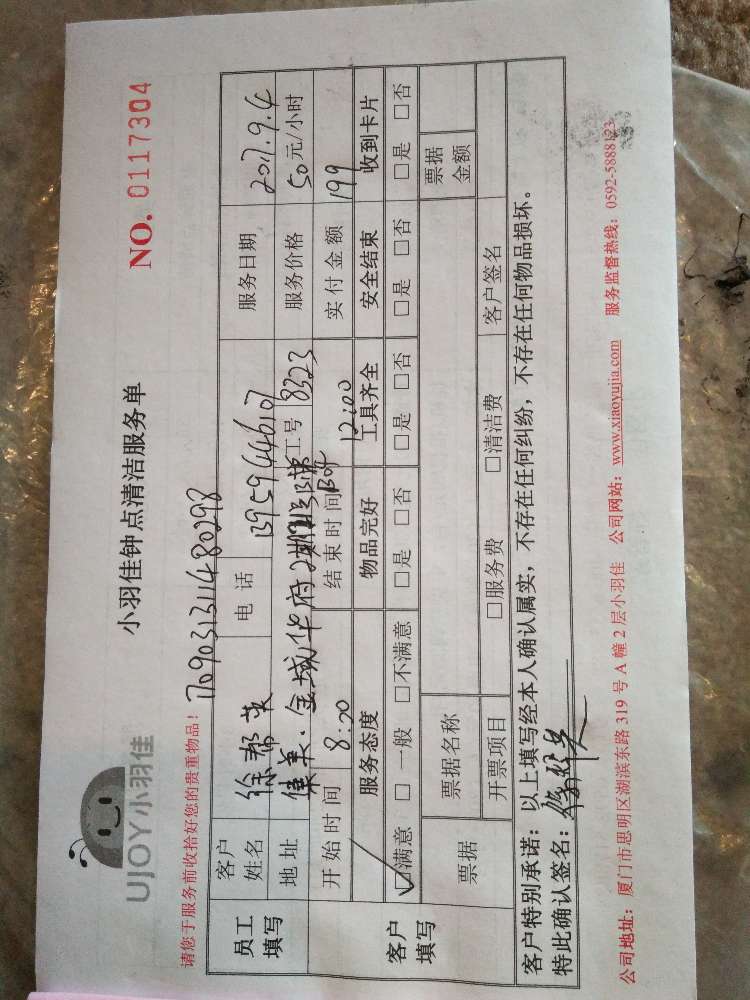 UJOY小羽佳
小羽佳钟点清洁服务单
NO. 0117304
请您于服务前收拾好您的贵重物品!
员工填写 客户姓名 徐帮英 电话 服务日期 2017.9.4
地址 集美·金域华府 工号 8323 服务价格 50元/小时
客户填写 开始时间 8:20 结束时间 12:00 实付金额 199
服务态度 物品完好 工具齐全 安全结束 收到卡片
☑满意 □一般 □不满意 □是 □否 □是 □否 □是 □否 □是 □否
票据 票据名称 票据金额
开票项目 □服务费 □清洁费 客户签名
客户特别承诺:以上填写经本人确认属实,不存在任何纠纷,不存在任何物品损坏。
特此确认签名:
公司地址:厦门市思明区湖滨东路319号A幢2层小羽佳 公司网站:www.xiaoyujia.com 服务监督热线:0592-5888123